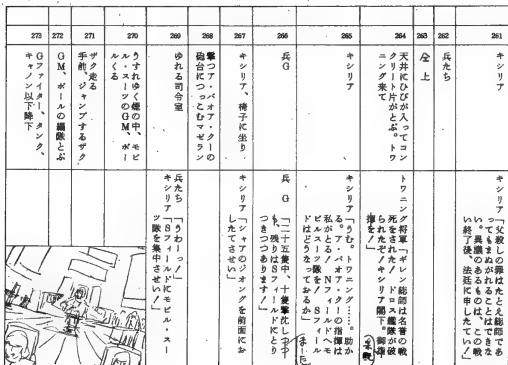 261
キシリア
キシリア「父殺しの罪はたとえ総師であ
ってもまぬがれることはできな
い。異議のあるものは、この戦
い終了後、法廷に申したてい！
262
兵たち
263
仝上
264
天井にひびが入ってコン
クリート片がとぶ。トワ
ニング来て
トワニング将軍「ギレン総師は名誉の戦
死をされた！ドロス艦隊が破
られたぞ！キシリア閣下。御指
揮を！」
265
キシリア
キシリア「うむ。トワニング……。助か
る。ア・バオア・クーの指揮は
私がとる！Nフィールドへモ
ビルスーツ隊を！Sフィール
ドはどうなっておるか」
266
兵G
兵G「二十五隻中、十隻撃沈しつつ
も、残りはSフィールドにとり
つきつつあります！」
267
キシリア、椅子に坐り
キシリア「シャアのジオングを前面にお
したてさせい」
268
撃つア・バオア・クーの
砲台につっこむマゼラン
269
ゆれる司令室
兵たち「うわーっ！」
キシリア「Sフィールドにモビル・スー
ツ隊を集中させい！」
270
うすれゆく煙の中、モビ
ル・スーツのGM、ボー
ルくる
271
ザク走る
手前、ジャンプするザク
272
GM、ボールの編隊とぶ
273
Gファイター、タンク、
キャノン以下降下